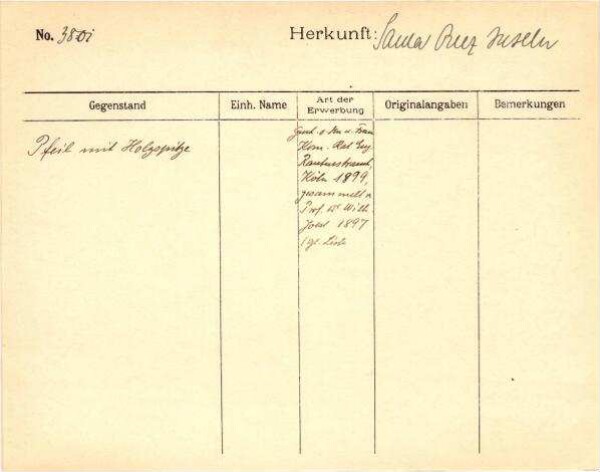 No. 380i
Herkunft: Santa Cruz Inseln
Gegenstand
Einh. Name
Art der
Erwerbung
Originalangaben
Bemerkungen
Pfeil mit Holzspitze
Gesch. v. Herrn u. Frau
Kom. Rat Eug.
Rautenstrauch,
Köln 1899,
gesammelt v.
Prof. Dr Wilh.
Joest 1897
(gr. Liste